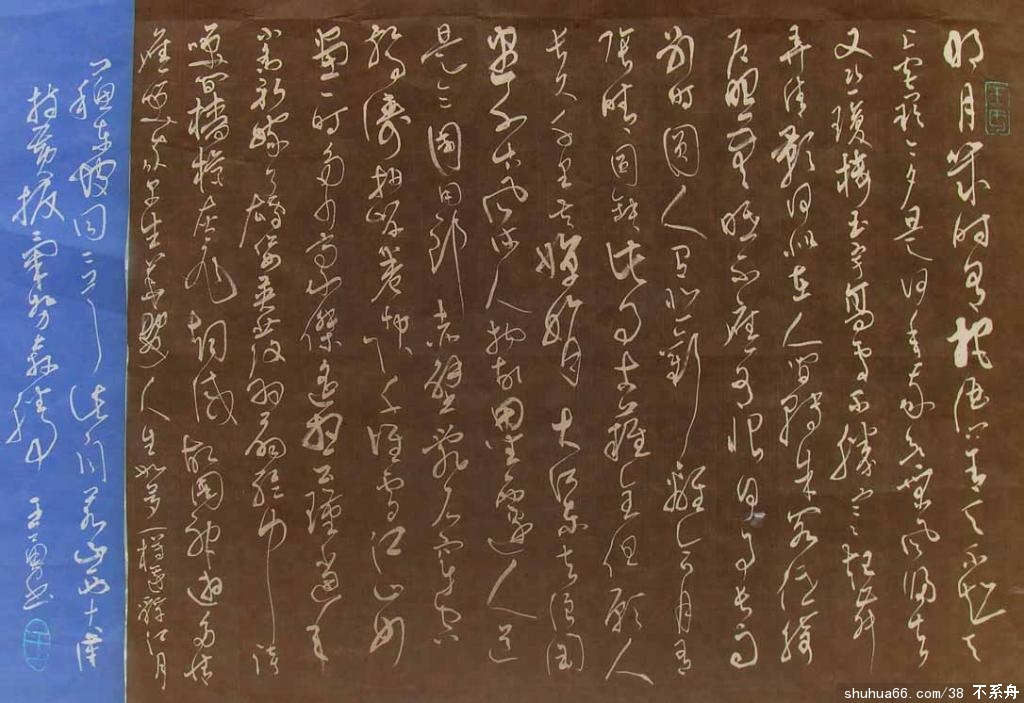 明月几时有把酒问青天不知天
上宫阙今夕是何年我欲乘风归去
又恐琼楼玉宇高处不胜寒起舞
弄清影何似在人间转朱阁低绮
户照无眠不应有恨何事长向
别时圆人有悲欢离合月有
阴晴圆缺此事古难全但愿人
长久千里共婵娟大江东去浪淘
尽千古风流人物故垒西边人道
是三国周郎赤壁乱石穿空
惊涛拍岸卷起千堆雪江山如
画一时多少豪杰遥想公瑾当年
小乔初嫁了雄姿英发羽扇纶巾谈
笑间樯橹灰飞烟灭故国神游多情
应笑我早生华发人生如梦一樽还酹江月
苏东坡词 山西大
王勇书
shuhua66.com/38 不系舟